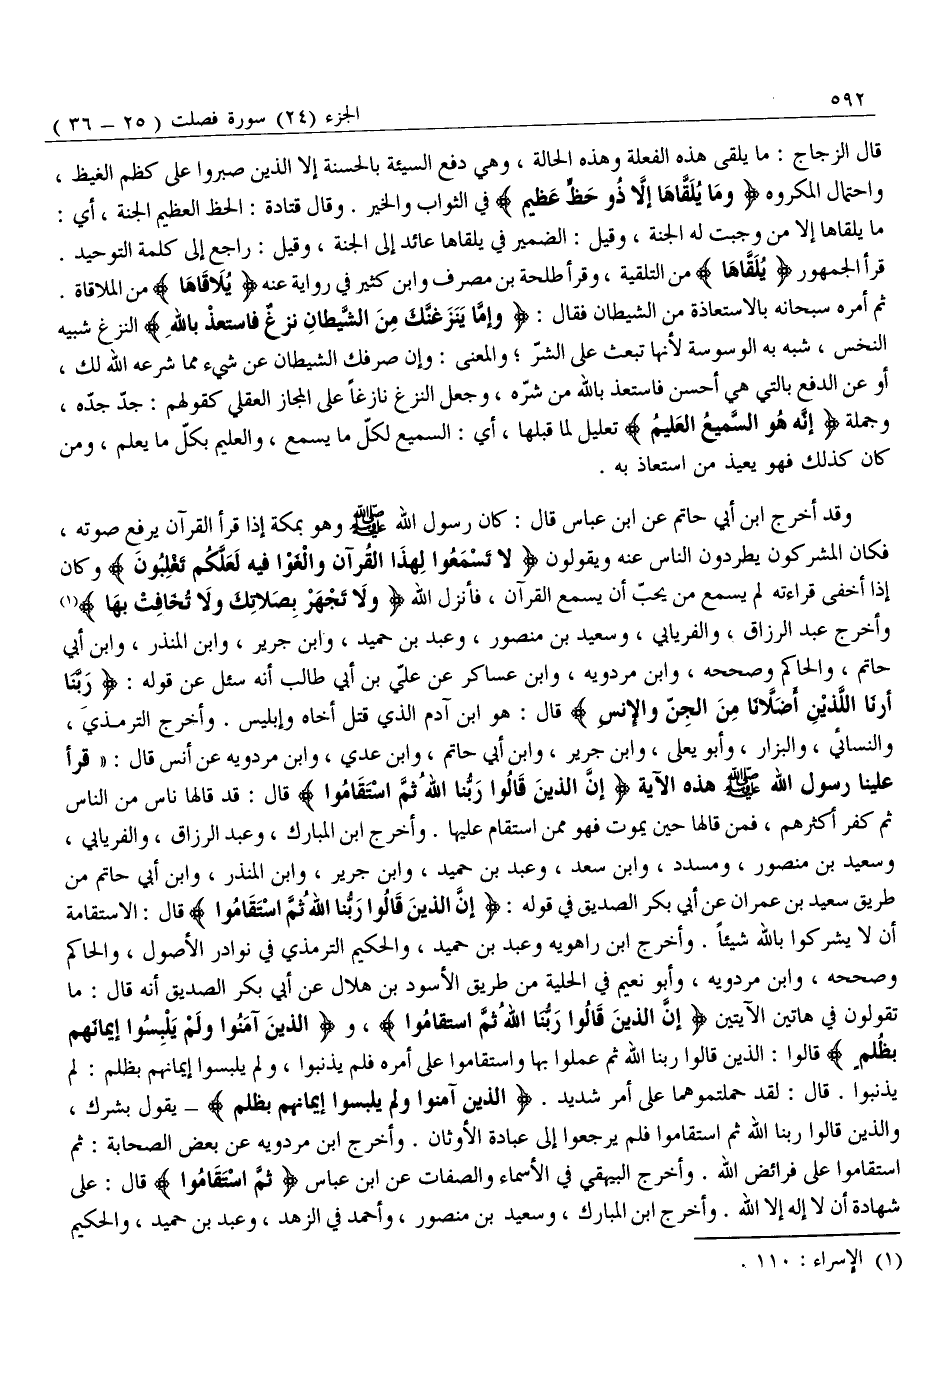 ٥٩٢
الجزء (٢٤) سورة فصلت ( ٢٥ – ٣٦ )
قال الزجاج : ما يلقى هذه الفعلة وهذه الحالة ، وهي دفع السيئة بالحسنة إلا الذين صبروا على كظم الغيظ ،
واحتمال المكروه ﴿ ومَا يُلَقَّاها إلَّا ذُو حَظٍّ عَظيم ﴾ في الثواب والخير . وقال قتادة : الحظ العظيم الجنة ، أي :
ما يلقاها إلا من وجبت له الجنة ، وقيل : الضمير في يلقاها عائد إلى الجنة ، وقيل : راجع إلى كلمة التوحيد .
قرأ الجمهور ﴿ يُلَقَّاهَا ﴾ من التلقية ، وقرأ طلحة بن مصرف وابن كثير في رواية عنه ﴿ يُلَاقَاهَا ﴾ من الملاقاة .
ثم أمره سبحانه بالاستعاذة من الشيطان فقال : ﴿ وإمَّا يَنَزَغنَّكَ مِنَ الشَّيطانِ نزغٌ فاستعذْ باللهِ ﴾ النزغ شبيه
النخس ، شبه به الوسوسة لأنها تبعث على الشرّ ؛ والمعنى : وإن صرفك الشيطان عن شيء مما شرعه الله لك ،
أو عن الدفع بالتي هي أحسن فاستعذ بالله من شرّه ، وجعل النزغ نازغاً على المجاز العقلي كقولهم : جدّ جدّه ،
وجملة ﴿ إنَّه هُو السَّميعُ العَليمُ ﴾ تعليل لما قبلها ، أي : السميع لكلّ ما يسمع ، والعليم بكلّ ما يعلم ، ومن
كان كذلك فهو يعيذ من استعاذ به .
وقد أخرج ابن أبي حاتم عن ابن عباس قال : كان رسول الله ﷺ وهو بمكة إذا قرأ القرآن يرفع صوته ،
فكان المشركون يطردون الناس عنه ويقولون ﴿ لا تَسْمَعُوا لِهذَا القُرآن والْغَوْا فيه لَعَلَّكُم تَغْلِبُونَ ﴾ وكان
إذا أخفى قراءته لم يسمع من يحبّ أن يسمع القرآن ، فأنزل الله ﴿ ولَا تَجْهَرْ بِصَلاتِكَ ولَا تُخَافِتْ بهَا ﴾(١)
وأخرج عبد الرزاق ، والفريابي ، وسعيد بن منصور ، وعبد بن حميد ، وابن جرير ، وابن المنذر ، وابن أبي
حاتم ، والحاكم وصححه ، وابن مردويه ، وابن عساكر عن عليّ بن أبي طالب أنه سئل عن قوله : ﴿ رَبَّنَا
أرنَا اللَّذَيْنِ أَضَلَّانَا مِنَ الجِنّ والإنسِ ﴾ قال : هو ابن آدم الذي قتل أخاه وإبليس . وأخرج الترمذي ،
والنسائي ، والبزار ، وأبو يعلى ، وابن جرير ، وابن أبي حاتم ، وابن عدي ، وابن مردويه عن أنس قال : « قرأ
علينا رسول الله ﷺ هذه الآية ﴿ إنَّ الذينَ قَالُوا رَبُّنا اللهُ ثمَّ استَقَامُوا ﴾ قال : قد قالها ناس من الناس
ثم كفر أكثرهم ، فمن قالها حين يموت فهو ممن استقام عليها . وأخرج ابن المبارك ، وعبد الرزاق ، والفريابي ،
وسعيد بن منصور ، ومسدد ، وابن سعد ، وعبد بن حميد ، وابن جرير ، وابن المنذر ، وابن أبي حاتم من
طريق سعيد بن عمران عن أبي بكر الصديق في قوله : ﴿ إنَّ الذينَ قَالُوا رَبُّنا اللهُ ثمَّ اسْتَقَامُوا ﴾ قال : الاستقامة
أن لا يشركوا بالله شيئاً . وأخرج ابن راهويه وعبد بن حميد ، والحكيم الترمذي في نوادر الأصول ، والحاكم
وصححه ، وابن مردويه ، وأبو نعيم في الحلية من طريق الأسود بن هلال عن أبي بكر الصديق أنه قال : ما
تقولون في هاتين الآيتين ﴿ إنَّ الذينَ قَالُوا رَبُّنَا اللهُ ثمَّ استقامُوا ﴾ ، و ﴿ الذينَ آمَنُوا ولَمْ يَلْبِسُوا إيمَانَهم
بظُلمٍ ﴾ قالوا : الذين قالوا ربنا الله ثم عملوا بها واستقاموا على أمره فلم يذنبوا ، ولم يلبسوا إيمانهم بظلم : لم
يذنبوا . قال : لقد حملتموهما على أمر شديد . ﴿ الذين آمنوا ولم يلبسوا إيمانهم بظلم ﴾ – يقول بشرك ،
والذين قالوا ربنا الله ثم استقاموا فلم يرجعوا إلى عبادة الأوثان . وأخرج ابن مردويه عن بعض الصحابة : ثم
استقاموا على فرائض الله . وأخرج البيهقي في الأسماء والصفات عن ابن عباس ﴿ ثمَّ اسْتَقَامُوا ﴾ قال : على
شهادة أن لا إله إلا الله . وأخرج ابن المبارك ، وسعيد بن منصور ، وأحمد في الزهد ، وعبد بن حميد ، والحكيم
(١) الإسراء : ١١٠ .